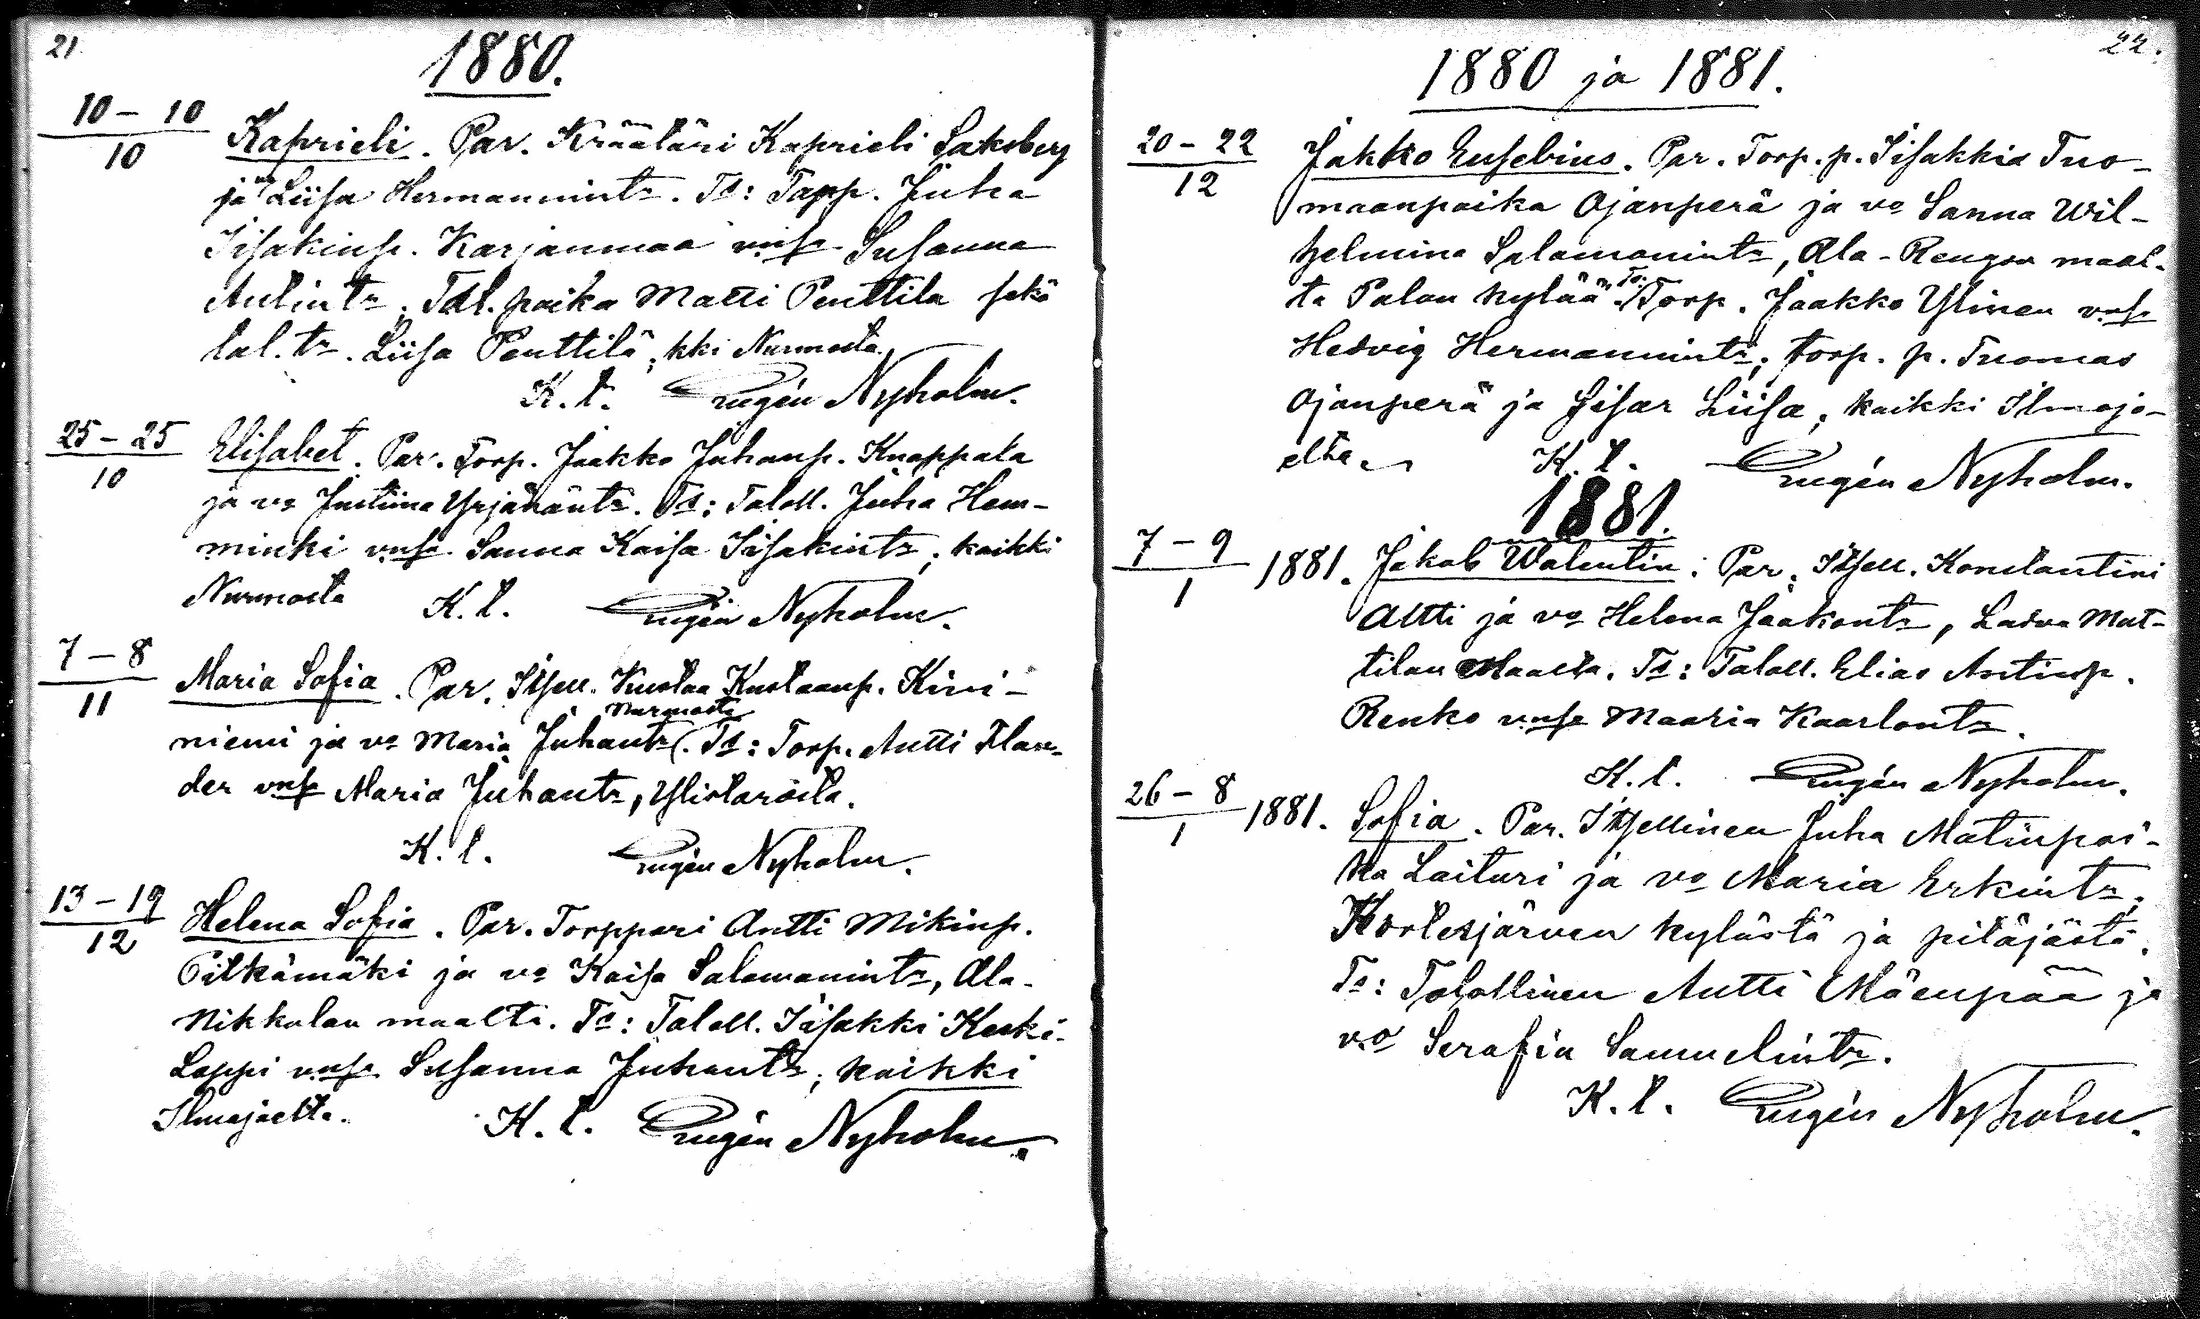 21
1880.
10 – 10
10
Kaprieli. Par. Kräätäri Kaprieli Saksberg
ja vo Liisa Hermannintr. Td: Tapp. Juha
Iisakinp. Karjanmaa vnsa Susanna
Antintr. Tal. poika Matti Penttila sekä
tal. tr. Liisa Penttilä; kki Nurmosta.
K. t. Eugén Nyholm.
25 – 25
10
Elisabet. Par. Torp. Jaakko Juhanp. Knappala
ja vo Justiina Yrjänäntr. Td: Taloll. Juha Hem-
minki vnsa Sanna Kaisa Iisakintr; kaikki
Nurmosta K. t. Eugén Nyholm.
7 – 8
11
Maria Sofia. Par. Itsell. Kustaa Kustaanp. Kivi-
Nurmosta
niemi ja vo Maria Juhantr. Td: Torp. Antti Flan-
der vnsa Maria Juhantr, Ylistarosta.
K. t. Eugén Nyholm.
13 – 19
12
Helena Sofia. Par. Torppari Antti Mikinp.
Pitkämäki ja vo Kaisa Salomonintr, Ala-
Nikkolan maalta. Td: Taloll. Iisakki Keski-
Lappi vnsa Susanna Juhantr; kaikki
Ilmajoelta. K. t. Eugén Nyholm.
22.
1880 ja 1881.
20 – 22
12
Jakko Eusebius. Par. Torp. p. Iisakkia Tuo-
maanpoika Ojanperä ja vo Sanna Wil-
helmina Salomonintr, Ala-Rengon maal-
ta Palon kylää. Td: Torp. Jaakko Ylinen vnsa
Hedvig Hermannintr; torp. p. Tuomas
Ojanperä ja sisar Liisa; kaikki Ilmajo-
elta. K. t. Eugén Nyholm.
1881.
7 – 9
1
1881. Jakob Walentin. Par. Itsell. Konstantini
Altti ja vo Helena Jaakontr, Ladva Mat-
tilan Maalta. Td: Taloll. Elias Antinp.
Renko vnsa Maaria Kaarlontr.
K. t. Eugén Nyholm.
26 – 8
1
1881. Sofia. Par. Itsellinen Juha Matinpoi-
ka Laituri ja vo Maria Erkintr.
Kortesjärven kylästä ja pitäjästä.
Td: Talollinen Antti Mäenpää ja
vo Serafia Samuelintr.
K. t. Eugén Nyholm.